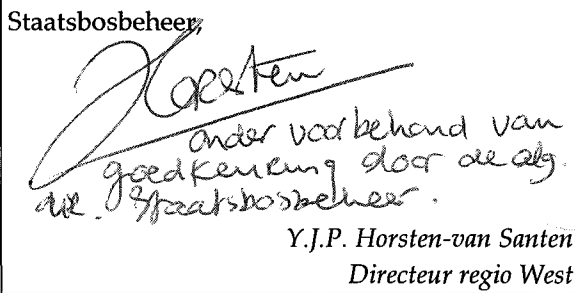 Staatsbosbeheer,
Horsten
onder voorbehoud van
goedkeuring door de alg.
dir. Staatsbosbeheer.
Y.J.P. Horsten-van Santen
Directeur regio West